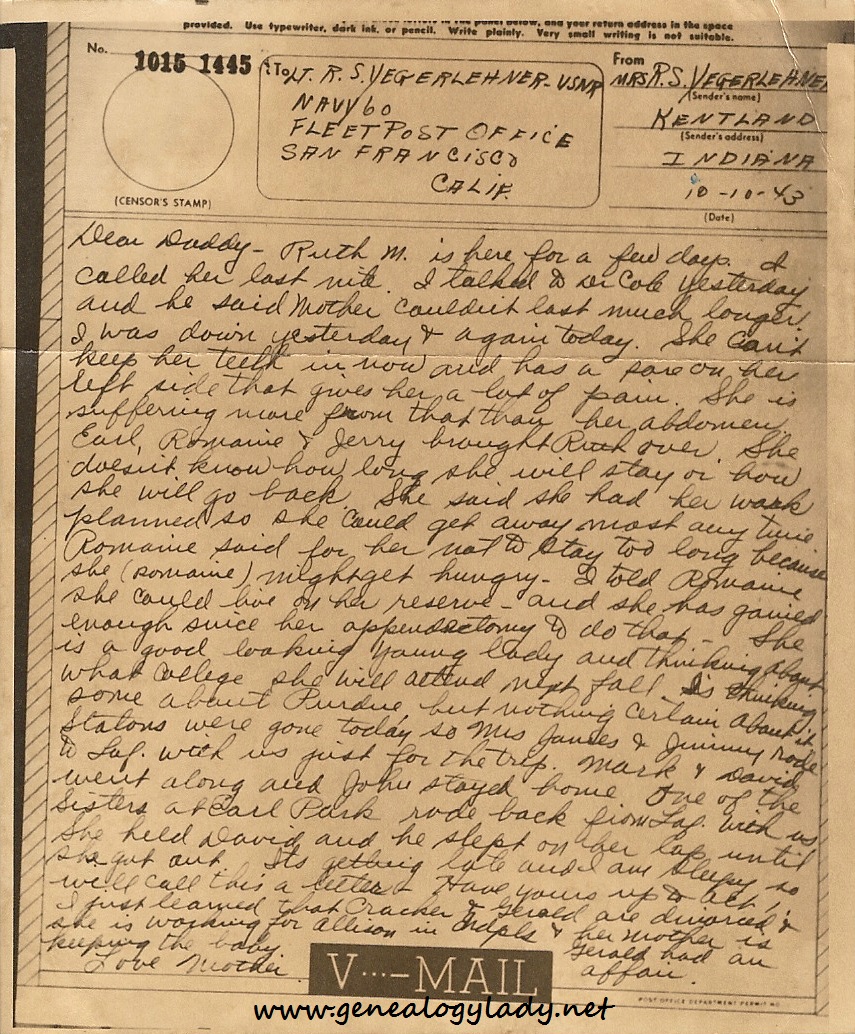 provided. Use typewriter, dark ink, or pencil. Write plainly. Very small writing is not suitable.
No.
1015 1445
To
LT. R. S. VEGERLEHNER USNR
NAVY 60
FLEET POST OFFICE
SAN FRANCISCO
CALIF.
(CENSOR'S STAMP)
From
MRS R.S. VEGERLEHNER
(Sender's name)
KENTLAND
(Sender's address)
INDIANA
10-10-43
(Date)
Dear Daddy – Ruth M. is here for a few days. I
called her last nite. I talked to Dr Cole yesterday
and he said Mother couldn't last much longer.
I was down yesterday & again today. She can't
keep her teeth in now and has a sore on her
left side that gives her a lot of pain. She is
suffering more from that than her abdomen.
Earl, Romaine & Jerry brought Ruth over. She
doesn't know how long she will stay or how
she will go back. She said she had her work
planned so she could get away most any time
Romaine said for her not to stay too long because
she (Romaine) might get hungry – I told Romaine
she could live on her reserve – and she has gained
enough since her appendectomy to do that – She
is a good looking young lady and thinking about
what college she will attend next fall. Is thinking
some about Purdue but nothing certain about it
Statons were gone today so Mrs James & Jimmy rode
to Laf. with us just for the trip. Mark & David
went along and John stayed home. One of the
Sisters at Earl Park rode back from Laf. with us
She held David and he slept on her lap until
she got out. Its getting late and I am sleepy so
will call this a letter – Have yours up to
I just learned that Cracker & Gerald are divorced &
she is working for Allison in Indpls & her mother is
keeping the baby
Gerald had an
affair.
Love Mother
V···–MAIL
POST OFFICE DEPARTMENT PERMIT NO.
www.genealogylady.net